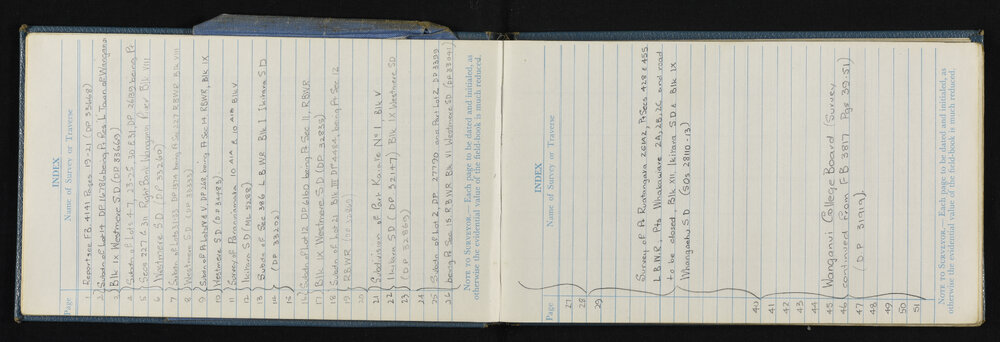 INDEX
Page Name of Survey or Traverse
1 Report see FB 4141 Pages 19-21 (DP 33668)
2 Subdn of Lot 14 DP 16786 being Pt Res L Town of Wanganui
3 Blk IX Westmere S.D (DP 33669)
4 Subdn of Lots 4-7, 23-25, 30 & 31 DP 26139 being Pt
5 Secs 227 & 311 Right Bank Wanganui River Blk VIII
6 Westmere S.D (DP 33260)
7 Subdn of Lots 31-33 DP being Pt Sec 227 RBWR Blk VIII
8 Westmere S.D (DP 33333)
9 Subn of Pt Lots IV & V, DP 268 being Pt Sec 14 RBWR, Blk IX
10 Westmere S.D (DP 34483)
11 Survey of Paranuiamata 10 A1A & 10 A1B Blk V
12 Ikitara S.D (ML 3288)
13 Subdn of Sec 386 L.B.W.R Blk I Ikitara S.D
14 (DP 33292)
15
16 Subdn of Lot 12 DP 6160 being Pt Sec 11, RBWR
17 Blk IX Westmere S D (DP 32839)
18 Subdn of Lot 22 Blk III DP 4484 being Pt Sec 12
19 RBWR
20
21 Subdivision of Part Kaimatira No 1 Blk V
22 Ikitara SD (DP 32147) Blk IX Westmere SD
23 (DP 32869)
24
25 Subdn of Lot 2, DP 27790 and Part Lot 2 DP 3399
26 being Pt Sec 15, RBWR Blk VI Westmere SD (DP 33091)
NOTE TO SURVEYOR.— Each page to be dated and initialed, as
otherwise the evidential value of the field-book is much reduced.
INDEX
Page Name of Survey or Traverse
27
28
29
Survey of Pt Ruatangata 2GM2, Pt Secs 428 & 455
L.B.W.R, Pts Whakaware 2A, 2B, 2C and road
to be closed, Blk XII, Ikitara S.D & Blk IX
Whangaehu S.D (SOs 28110-13)
40
44
45 Wanganui College Board (Survey
46 continued from FB 3817 Pgs 39-51)
47 (D.P 31919)
48
49
50
51
NOTE TO SURVEYOR.— Each page to be dated and initialed, as
otherwise the evidential value of the field-book is much reduced.